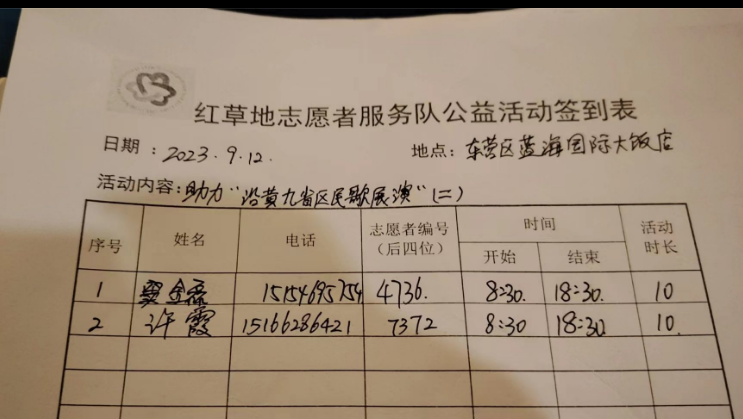 红草地志愿者服务队公益活动签到表
日期：2023.9.12. 地点：东营区蓝海国际大饭店
活动内容：助力“沿黄九省区民歌展演”（二）
序号 姓名 电话 志愿者编号（后四位） 时间 开始 结束 活动时长
1 金磊 15154695754 4736. 8:30. 18:30. 10
2 许霞 15166286421 7372 8:30 18:30 10.